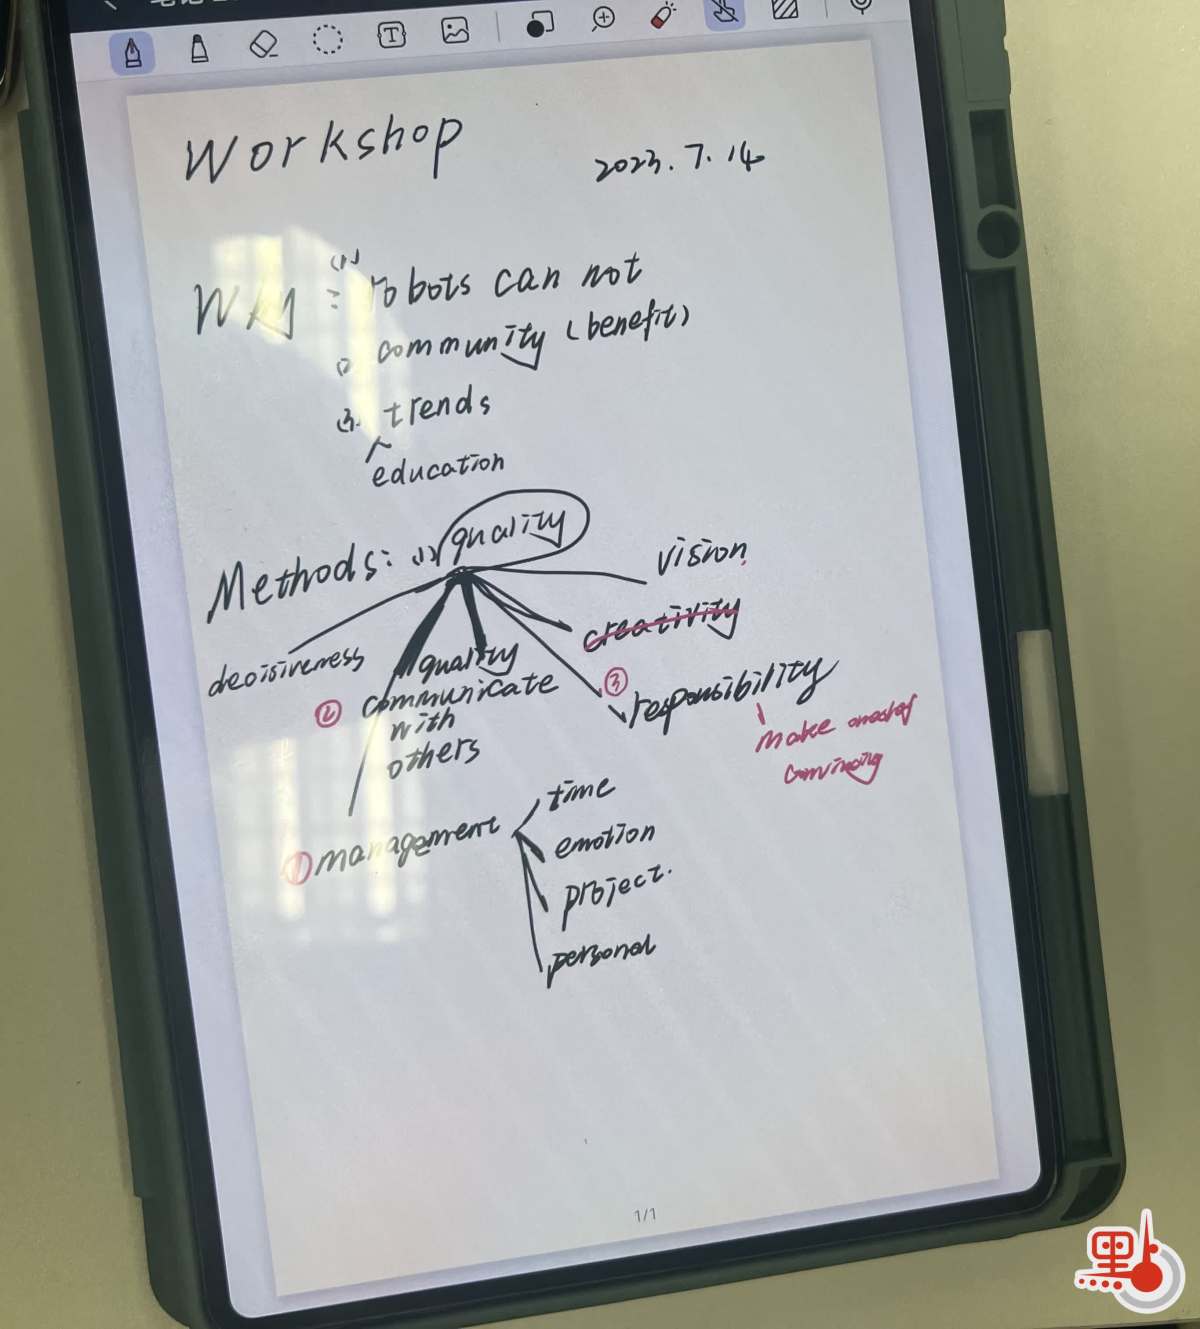 Workshop
2023.7.14
Why: (1) robots can not
(2) community (benefit)
(3) trends
education
Methods: (1) quality
vision
creativity
decisiveness
quality
② communicate
with
others
③ responsibility
make
convincing
① management
time
emotion
project.
personal
1/1
里